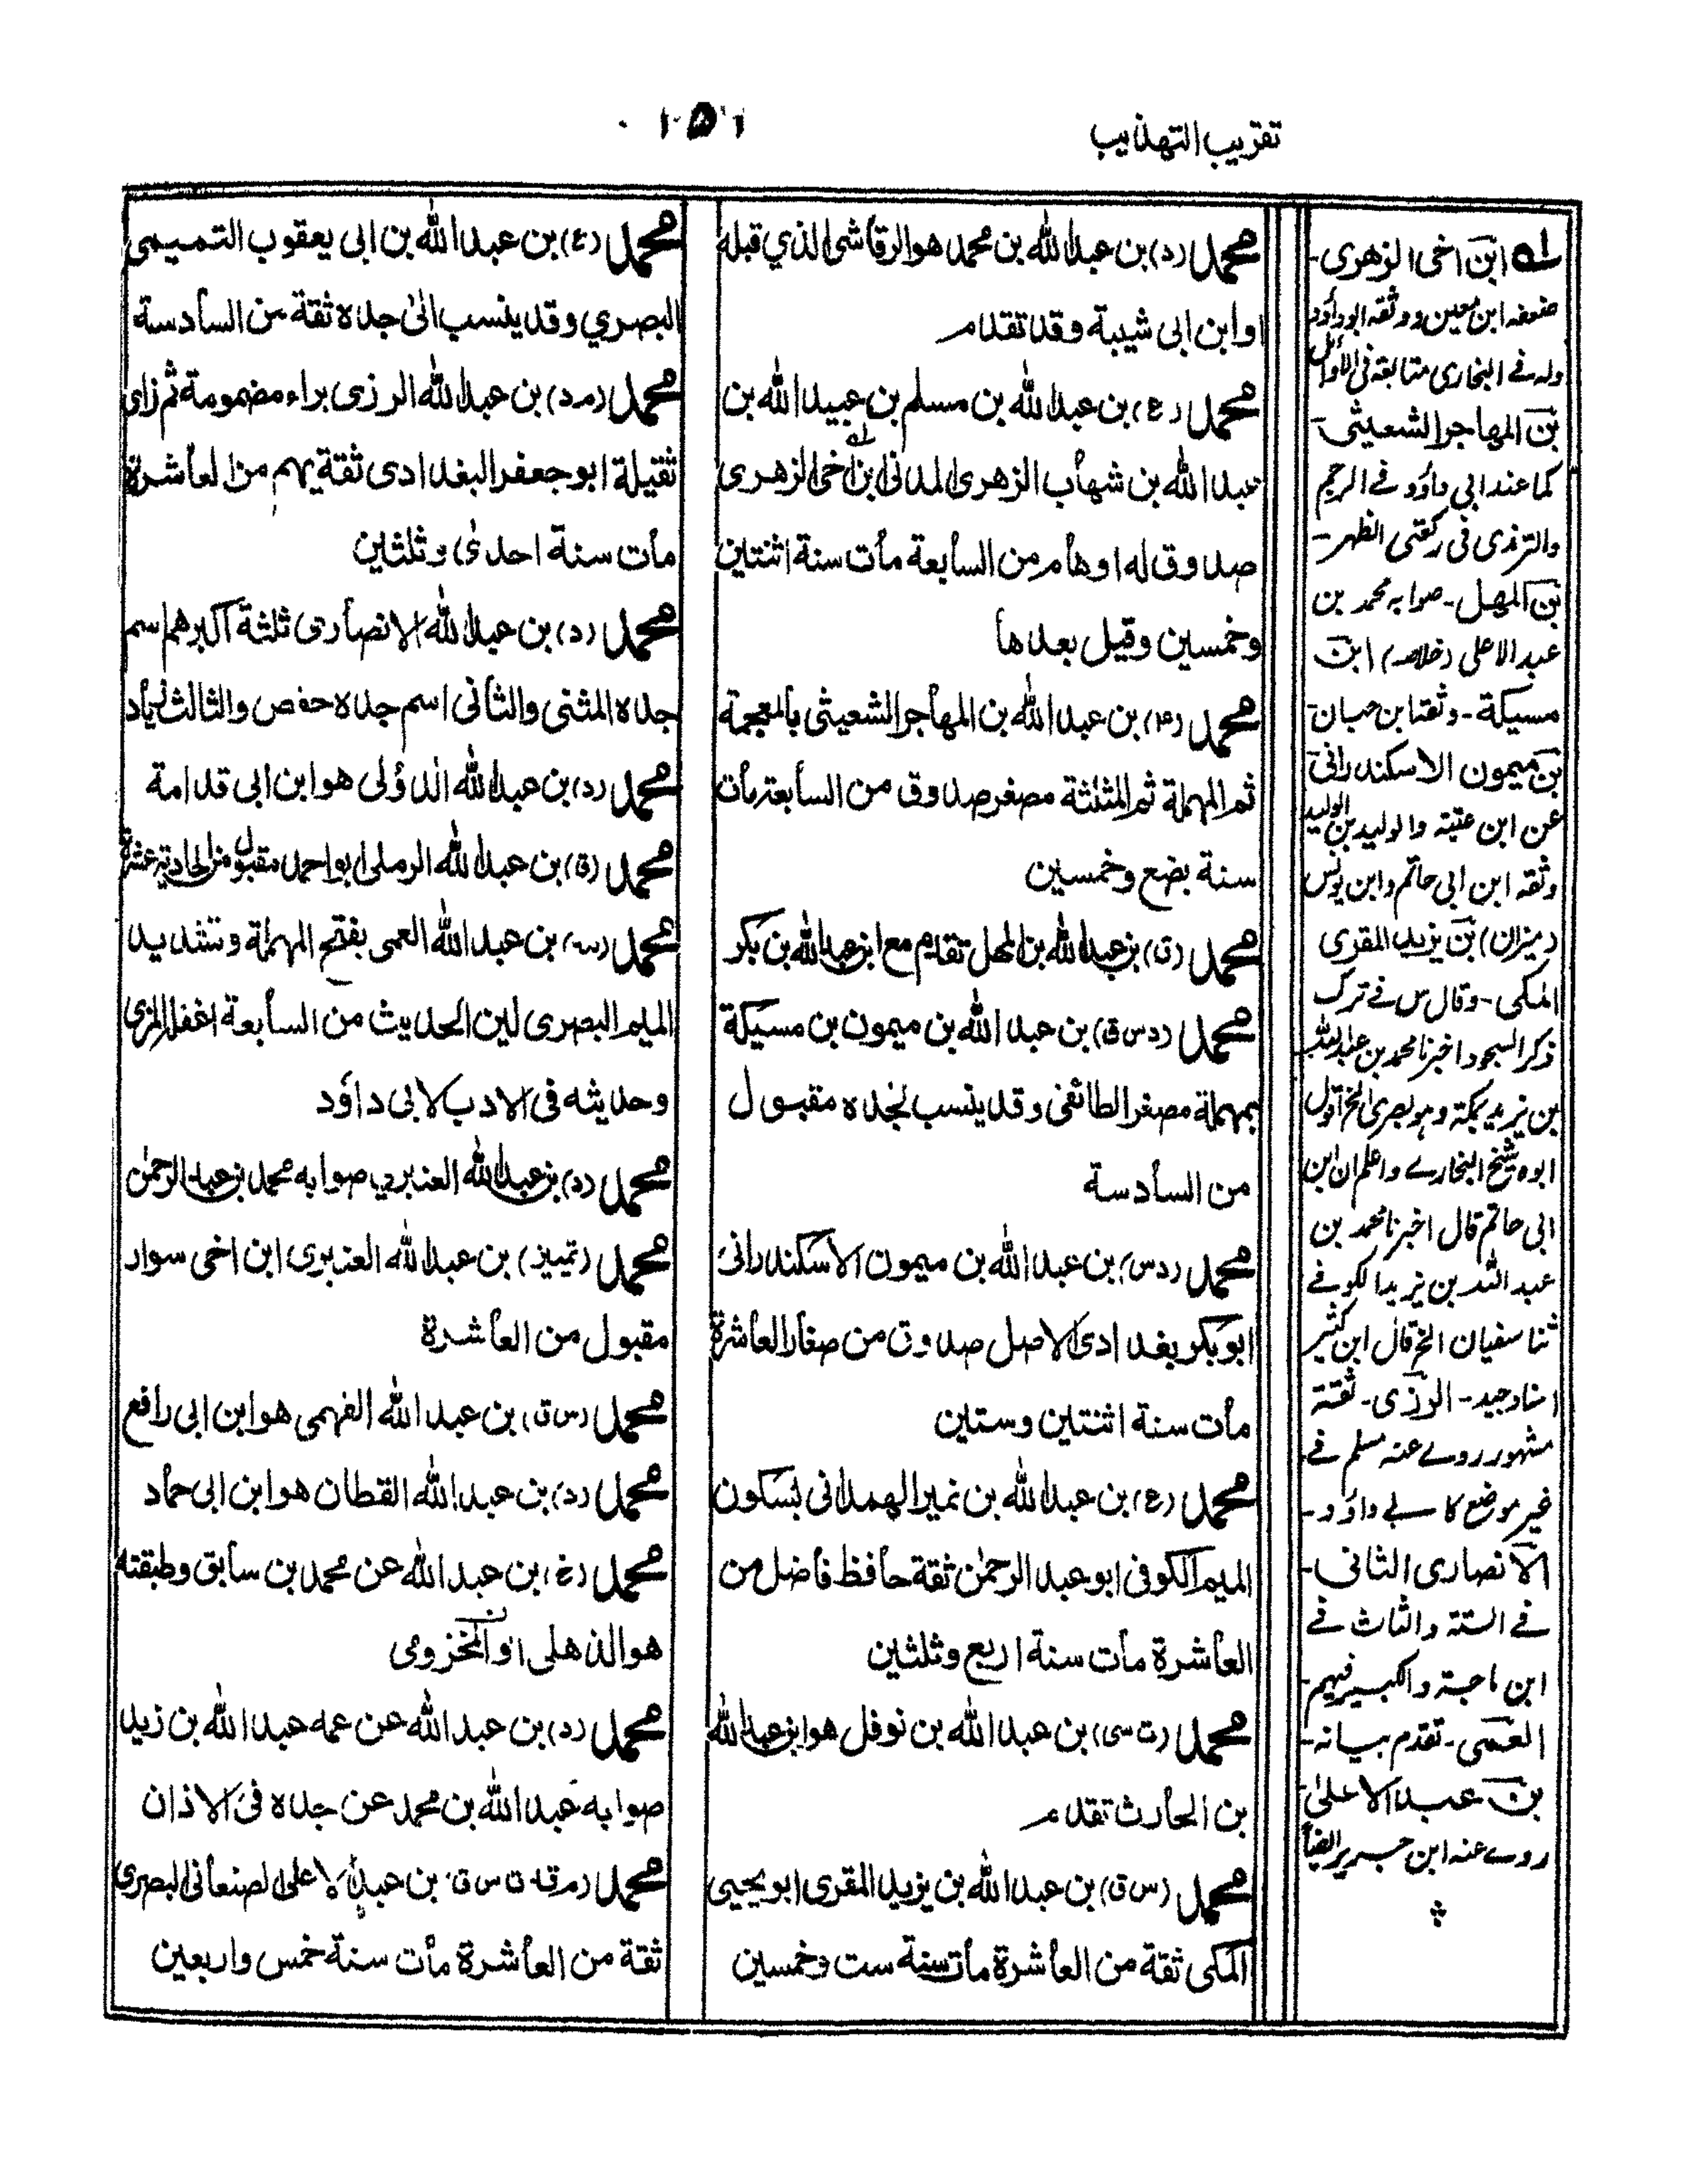 تقريب التهذيب
محمد (د) بن عبد الله بن محمد هو الرقاشى الذي قبله
او ابن ابى شيبة وقد تقدم
محمد (ع) بن عبد الله بن مسلم بن عبيد الله بن
عبد الله بن شهاب الزهرى المدنى ابن اخى الزهرى
صدوق له اوهام من السابعة مات سنة اثنتين
وخمسين وقيل بعدها
محمد (٤) بن عبد الله بن المهاجر الشعيثى بالمعجمة
ثم المهملة ثم المثلثة مصغر صدوق من السابعة مات
سنة بضع وخمسين
محمد (ق) بن عبد الله بن المهل تقدم مع ابن عبد الله بن بكر
محمد (د س ق) بن عبد الله بن ميمون بن مسيكة
بمهملة مصغر الطائفى وقد ينسب لجده مقبول
من السادسة
محمد (د س) بن عبد الله بن ميمون الاسكندرانى
ابو بكر بغدادى الاصل صدوق من صغار العاشرة
مات سنة اثنتين وستين
محمد (ع) بن عبد الله بن نمير الهمدانى بسكون
الميم الكوفى ابو عبد الرحمٰن ثقة حافظ فاضل من
العاشرة مات سنة اربع وثلثين
محمد (ت سى) بن عبد الله بن نوفل هو ابن عبد الله
بن الحارث تقدم
محمد (س ق) بن عبد الله بن يزيد المقرى ابو يحيى
المكى ثقة من العاشرة مات سنة ست وخمسين
محمد (ع) بن عبد الله بن ابى يعقوب التميمى
البصري وقد ينسب الىٰ جده ثقة من السادسة
محمد (م د) بن عبد الله الرزى براء مضمومة ثم زاى
ثقيلة ابو جعفر البغدادى ثقة يهم من العاشرة
مات سنة احدىٰ وثلثين
محمد (د) بن عبد الله الانصارى ثلثة اكبرهم اسم
جده المثنى والثانى اسم جده حفص والثالث زياد
محمد (د) بن عبد الله الدؤلى هو ابن ابى قدامة
محمد (ق) بن عبد الله الرملى ابو احمد مقبول من الحادية عشرة
محمد بن عبد الله العمى بفتح المهملة وتشديد
الميم البصرى لين الحديث من السابعة اغفله المزى
وحديثه فى الادب لابى داؤد
محمد (د) بن عبد الله العنبري صوابه محمد بن عبد الرحمٰن
محمد (تمييز) بن عبد الله العنبرى ابن اخى سوار
مقبول من العاشرة
محمد (س ق) بن عبد الله الفهمى هو ابن ابى رافع
محمد (د) بن عبد الله القطان هو ابن ابى حماد
محمد (خ) بن عبد الله عن محمد بن سابق وطبقته
هو الذهلى او المخرومى
محمد (د) بن عبد الله عن عمه عبد الله بن زيد
صوابه عبد الله بن محمد عن جده فى الاذان
محمد (م قد ت س ق) بن عبد الاعلى الصنعانى البصرى
ثقة من العاشرة مات سنة خمس واربعين
لـه ابن اخى الزهرى-
ضعفه ابن معين ووثقه ابو داؤد
وله فے البخارى متابعة فى الاوائل
بن المهاجر الشعيثى-
كما عند ابي داؤد فے الرجم
والترمذى فى ركعتى الظهر-
بن المهل- صوابه محمد بن
عبد الاعلى (خلاصہ) ابن
مسيكة- وثقه ابن حبان-
بن ميمون الاسكندرانى
عن ابن عتبة والوليد بن الوليد
وثقه ابن ابى حاتم وابن يونس
(ميزان) بن يزيد المقرى
المكى- وقال س فے ترك
ذكر السجود اخبرنا محمد بن عبد الله
بن يزيد بمكة وهو بصرى الخ اقول
ابوه شيخ البخارے واعلم ان ابن
ابى حاتم قال اخبرنا محمد بن
عبد الله بن يزيد الكوفے
ثنا سفيان الخ قال ابن كثير
اسناد جيد- الرزى- ثقة
مشهور روے عنه مسلم فے
غير موضع كابے داؤد-
الانصارى الثانى-
فے الستة والثالث فے
ابن ماجة واكبرهم فيهم-
العمى- تقدم بيانه-
بن عبد الاعلىٰ
روے عنه ابن جرير ايضا